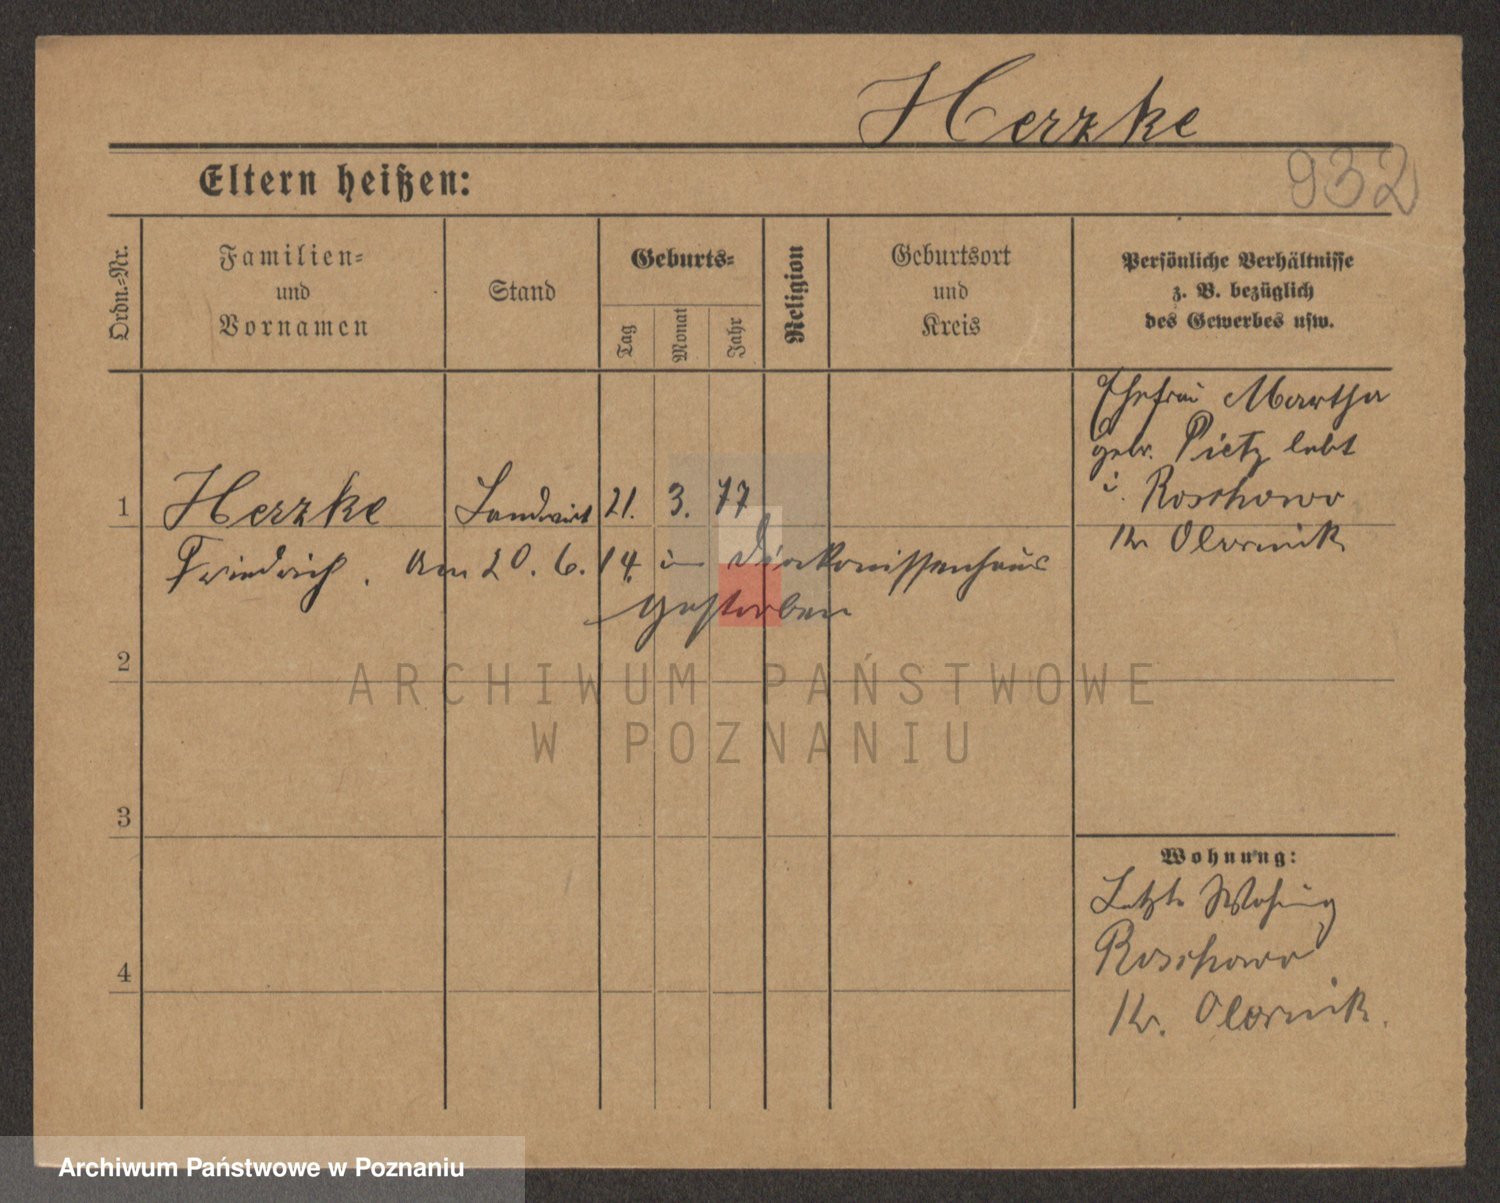 Herzke
932
Eltern heißen:
Ordn.-Nr.
Familien-
und
Vornamen
Stand
Geburts-
Tag
Monat
Jahr
Religion
Geburtsort
und
Kreis
Persönliche Verhältnisse
z. B. bezüglich
des Gewerbes usw.
Ehefrau Martha
geb. Pietz lebt
i. Roschowo
Kr Obornik
1 Herzke Landwirt 21. 3. 77
Friedrich. Am 20. 6. 14. im Diakonissenhaus
gestorben
2
ARCHIWUM PAŃSTWOWE
W POZNANIU
3
Wohnung:
Letzte Wohnung
Roschowo
4
Kr. Obornik.
Archiwum Państwowe w Poznaniu